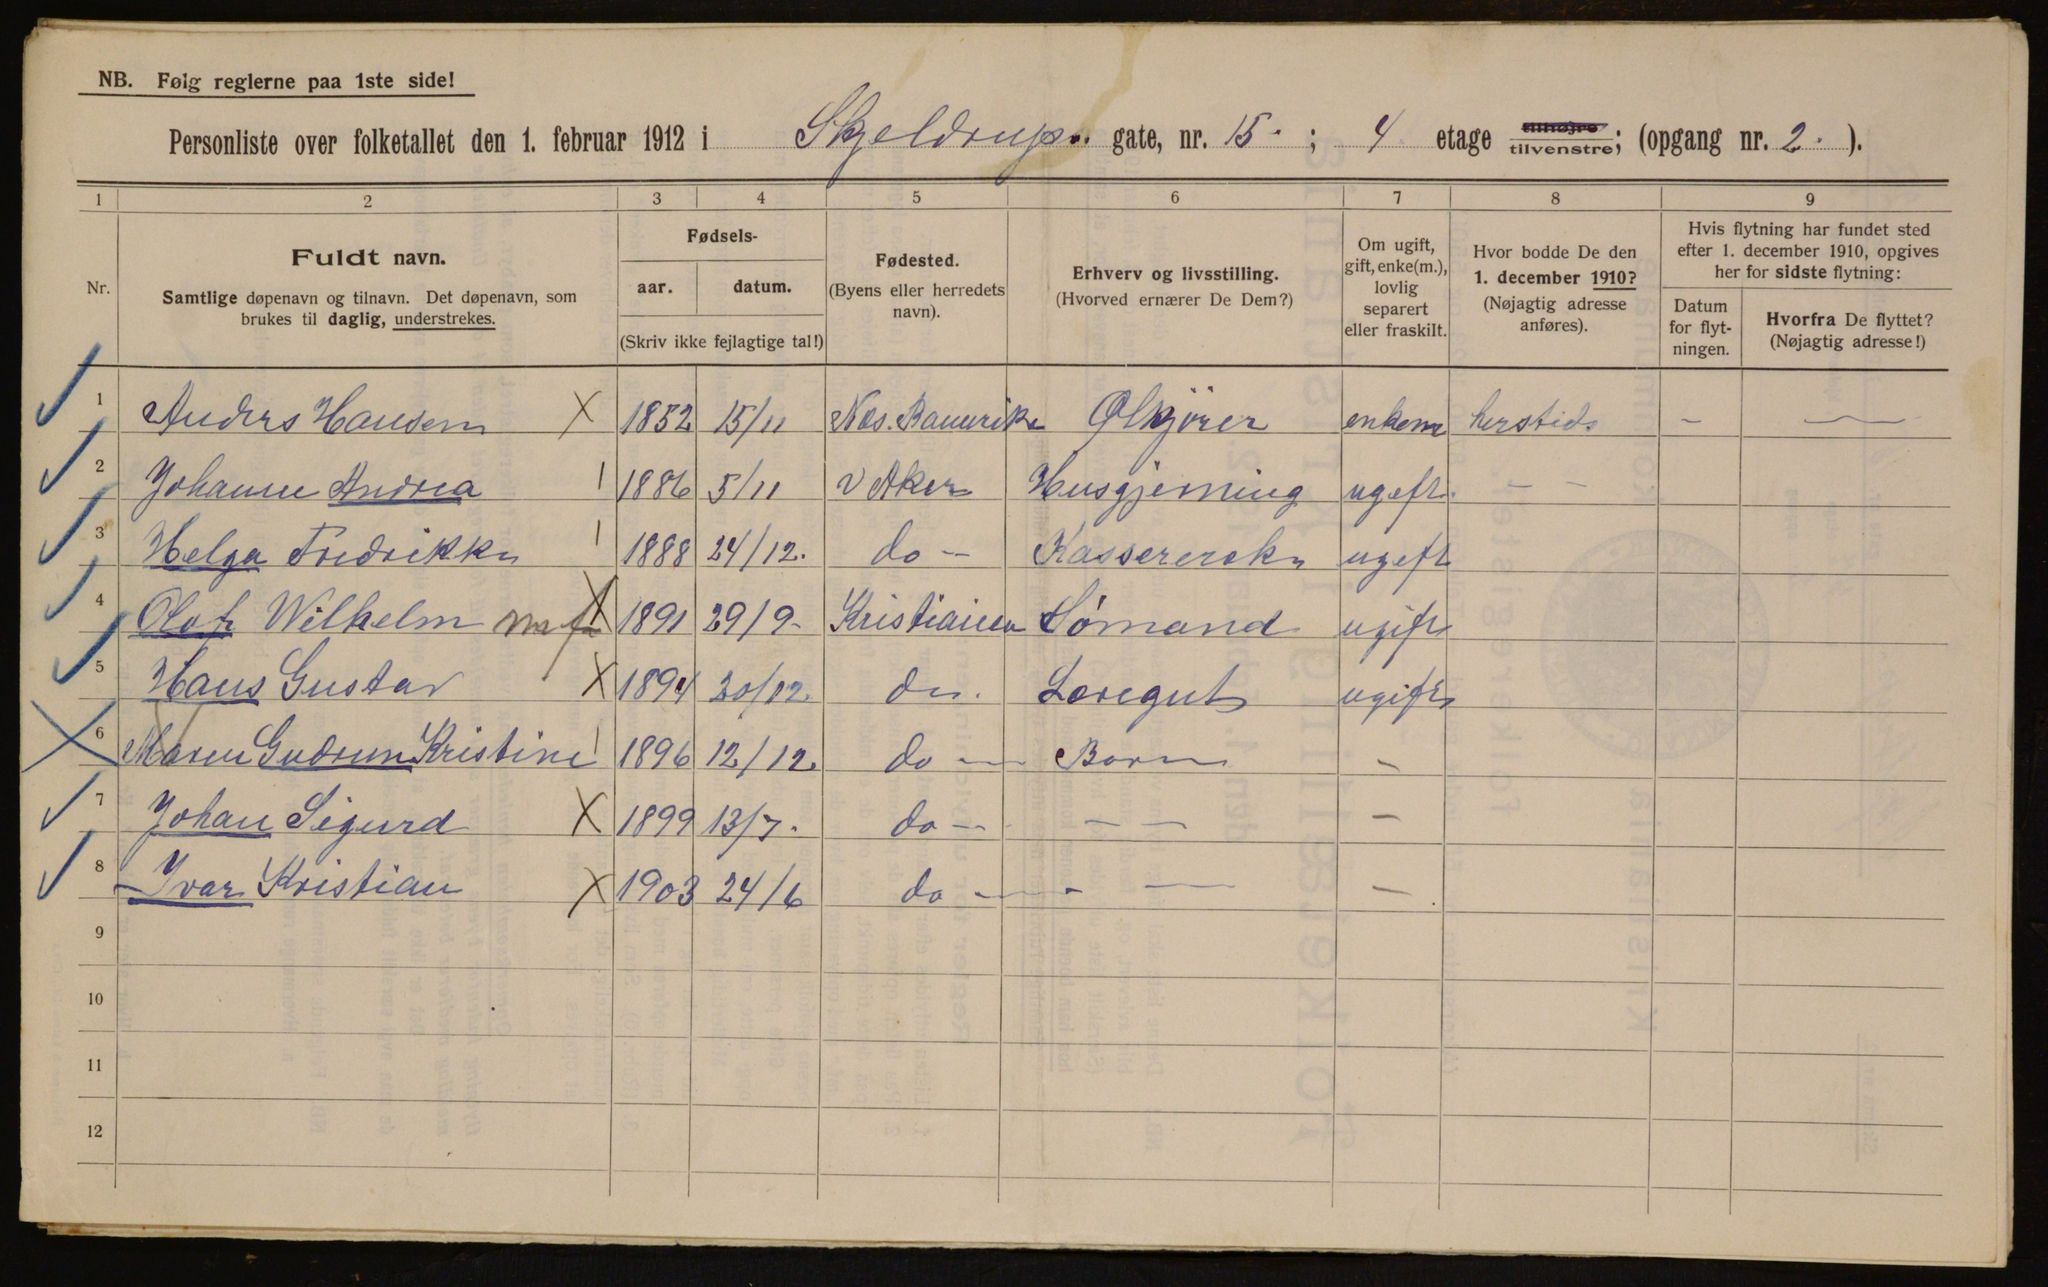 NB. Følg reglerne paa 1ste side!
Personliste over folketallet den 1. februar 1912 i Skjeldrups gate, nr. 15. ; 4 etage tilhøjre tilvenstre; (opgang nr. 2. ).
1 2 3 4 5 6 7 8 9
Nr.
Fuldt navn.
Samtlige døpenavn og tilnavn. Det døpenavn, som
brukes til daglig, understrekes.
Fødsels-
aar. datum.
(Skriv ikke fejlagtige tal!)
Fødested.
(Byens eller herredets
navn).
Erhverv og livsstilling.
(Hvorved ernærer De Dem?)
Om ugift,
gift, enke(m.),
lovlig
separert
eller fraskilt.
Hvor bodde De den
1. december 1910?
(Nøjagtig adresse
anføres).
Hvis flytning har fundet sted
efter 1. december 1910, opgives
her for sidste flytning:
Datum
for flyt-
ningen.
Hvorfra De flyttet?
(Nøjagtig adresse!)
1 Anders Hansen X 1852 15/11 Nes. Romerike Ølkjörer enkem herstids - -
2 Johanne Andrea 1886 5/11 V Aker Husgjerning ugift - -
3 Helga Fredrikke 1888 24/12. do -  ugift
4 Olof Wilhelm X 1891 29/9- Kristiania Sömand ugift
5 Hans Gustav X 1894 20/12. do. Læregut ugift
6 Maren Gudrun Kristine 1896 12/12. do - Barn -
7 Johan Sigurd X 1899 13/7. do - - - -
8 Ivar Kristian X 1903 24/6 do - - - -
9
10
11
12